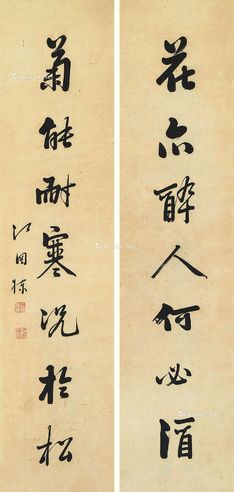 花亦醉人何必酒
菊能耐寒况於松
江国栋